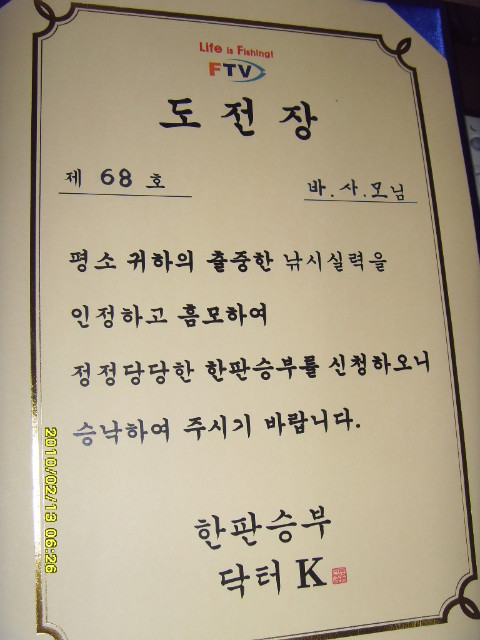 Life is Fishing!
FTV
도전장
제 68 호
바.사.모님
평소 귀하의 출중한 낚시실력을
인정하고 흠모하여
정정당당한 한판승부를 신청하오니
승낙하여 주시기 바랍니다.
한판승부
닥터 K
2010/02/13 06:26